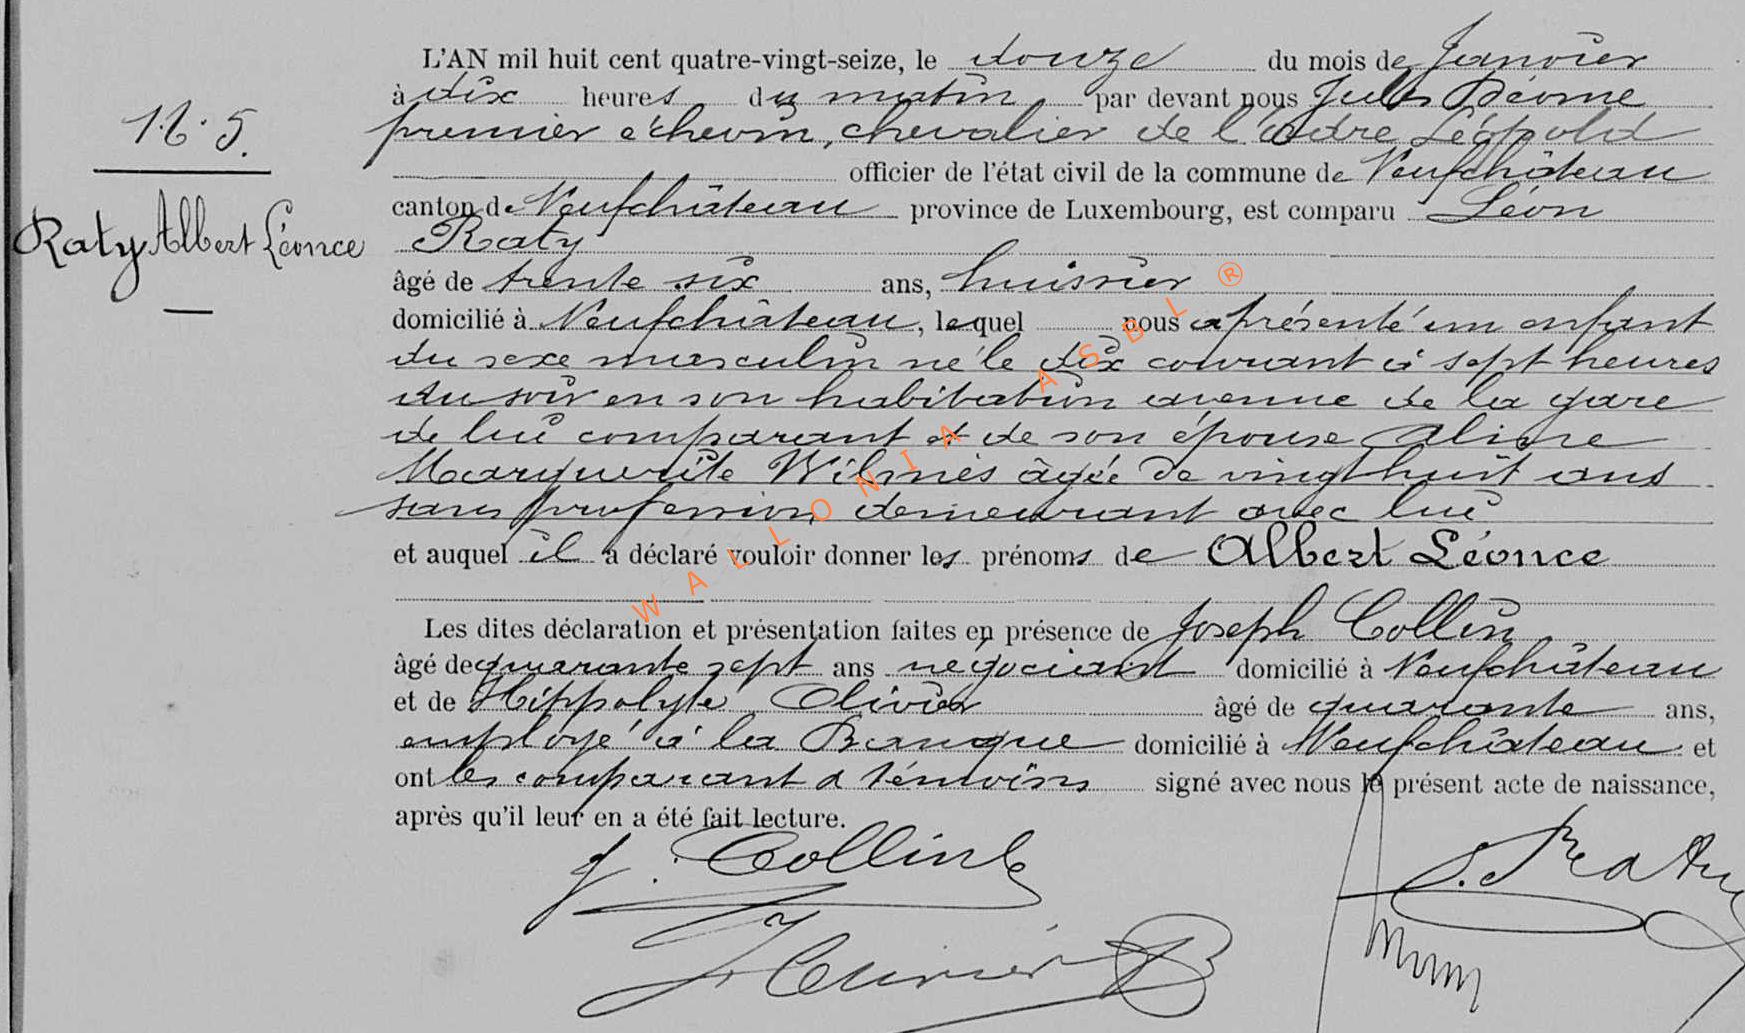 N. 5.
Raty Albert Léonce
L'AN mil huit cent quatre-vingt-seize, le douze du mois de Janvier
à dix heures du matin par devant nous Jules
premier échevin, chevalier de l'ordre Léopold
officier de l'état civil de la commune de Neufchâteau
canton de Neufchâteau province de Luxembourg, est comparu Léon
Raty
âgé de trente six ans, huissier
domicilié à Neufchâteau, lequel nous a présenté un enfant
du sexe masculin né le dix courant à sept heures
du soir en son habitation avenue de la gare
de lui comparant et de son épouse Aline
Marguerite Wilmès âgée de vingt huit ans
sans profession demeurant avec lui
et auquel il a déclaré vouloir donner les prénoms de Albert Léonce
Les dites déclaration et présentation faites en présence de Joseph Collin
âgé de quarante sept ans négociant domicilié à Neufchâteau
et de Hippolyte Olivier âgé de quarante ans,
employé à la Banque domicilié à Neufchâteau et
ont les comparant & témoins signé avec nous le présent acte de naissance,
après qu'il leur en a été fait lecture.
J. Collin
L. Raty
H Olivier
WALLONIA ASBL ®